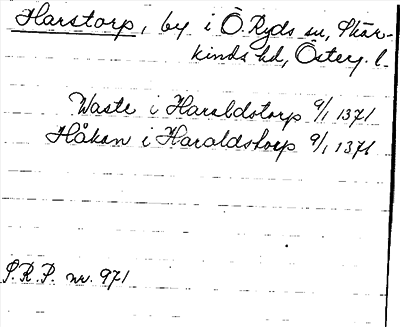 Harstorp, by i Ö. Ryds sn, Skär-
kinds hd, Österg. l.
Waste i Haraldstorp 9/1 1371
Håkan i Haraldstorp 9/1 1371
S.R.P. nr. 971